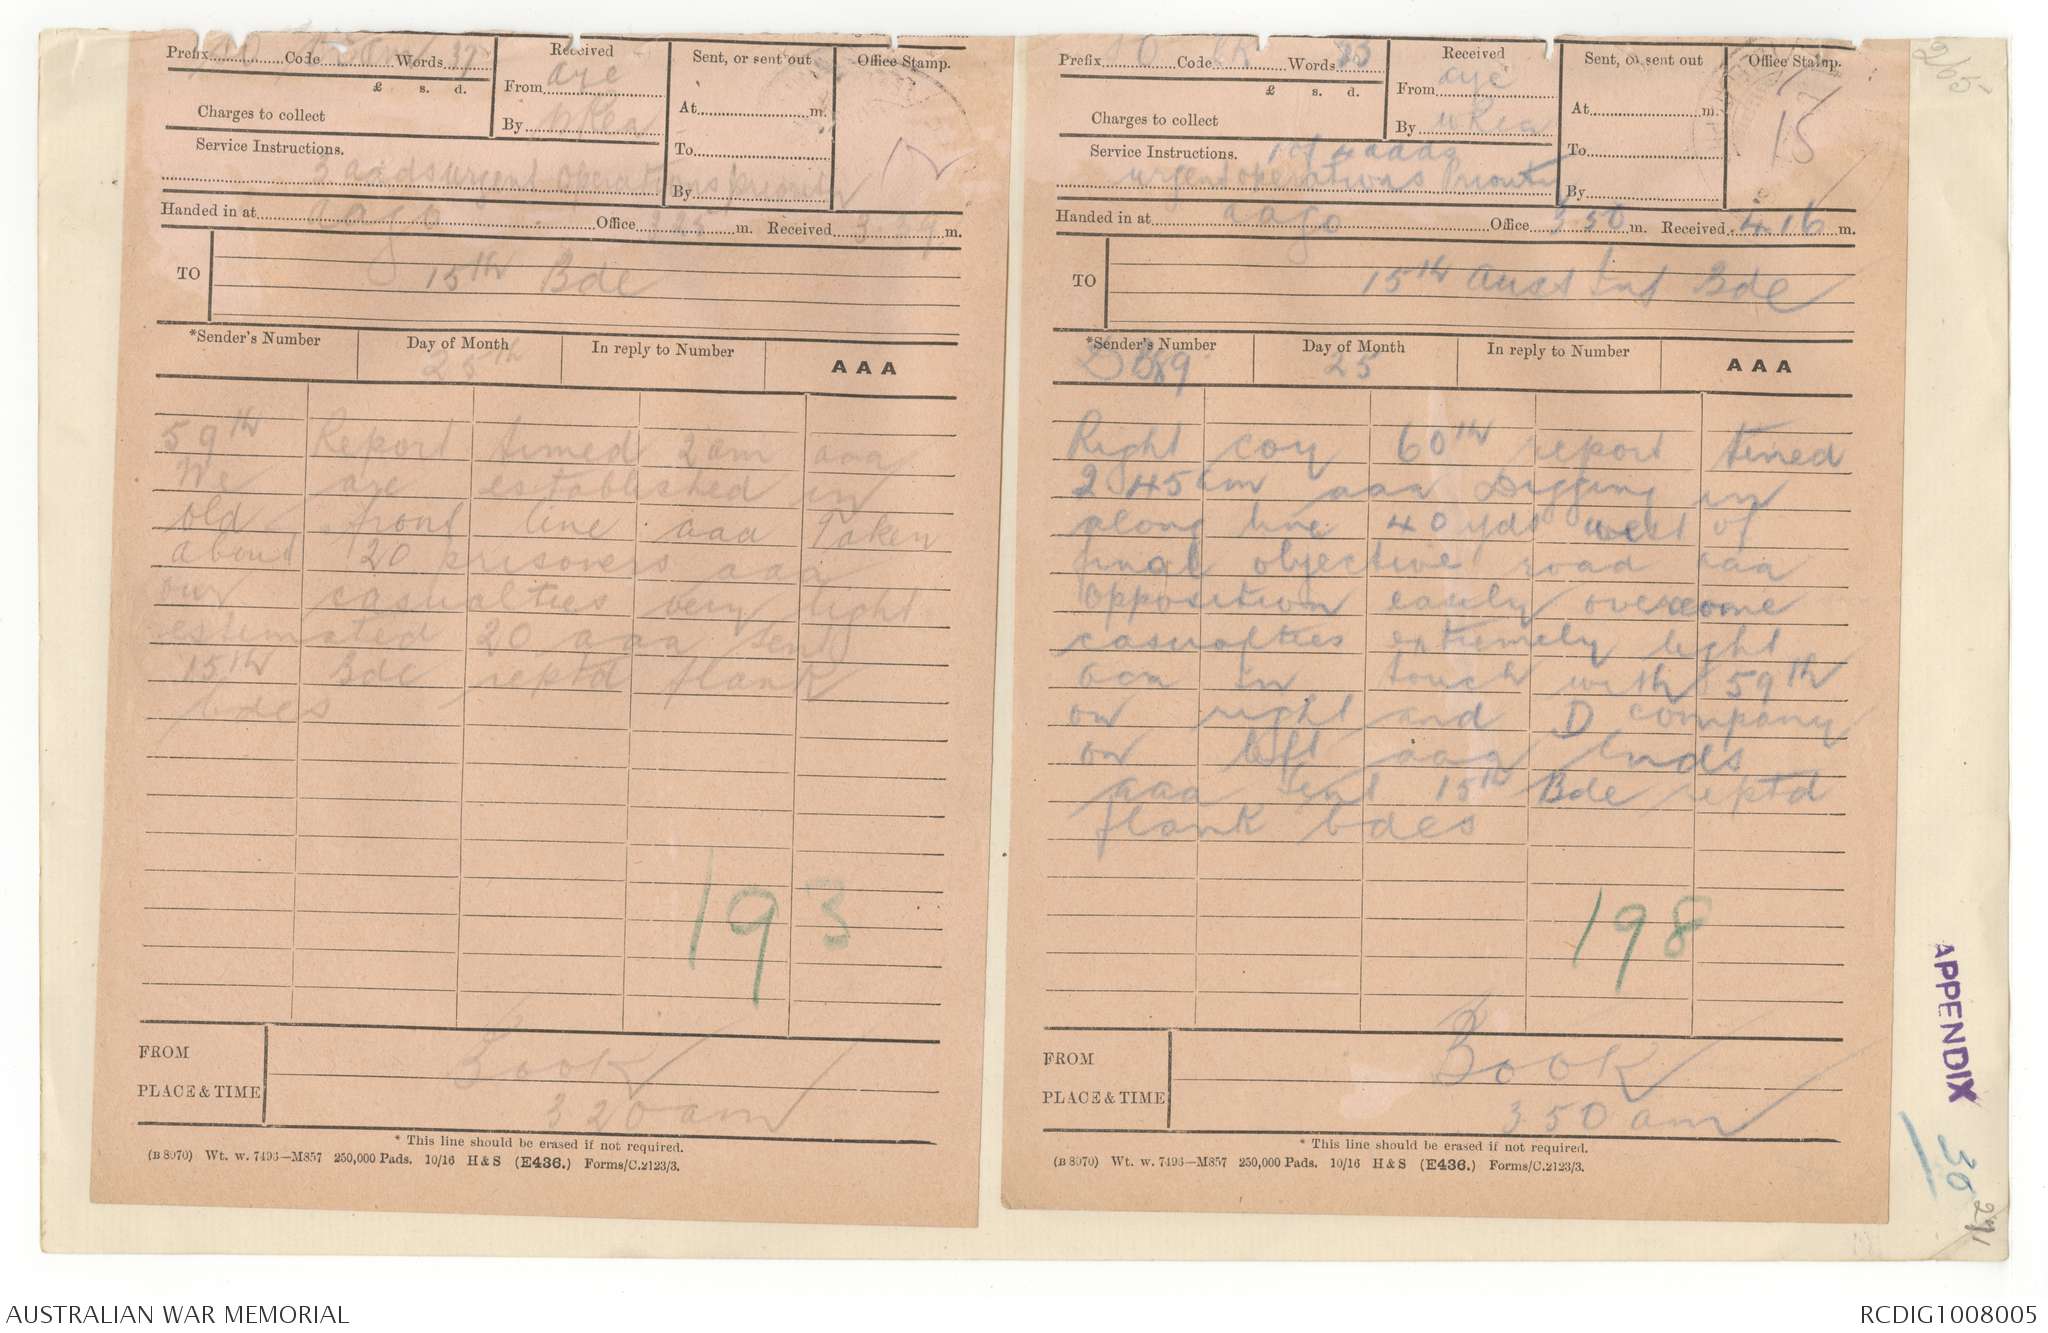 Prefix Code Words 37
Received
From aye
By
Sent, or sent out
At m.
To
By
Office Stamp.
£ s. d.
Charges to collect
Service Instructions.
3 aads urgent operations priority
Handed in at aago Office 325 m. Received 3.29 m.
TO 15th Bde
*Sender's Number
Day of Month
25th
In reply to Number
AAA
59th Report timed 2 am aaa
We are established in
old front line aaa Taken
about 20 prisoners aaa
our casualties very light
estimated 20 aaa sent
15th Bde reptd flank
bdes
193
FROM Book
PLACE & TIME 3 20 am
* This line should be erased if not required.
(B 8970) Wt. w. 7496—M857 250,000 Pads. 10/16 H & S (E436.) Forms/C.2123/3.
Prefix Code Words
Received
From aye
By
Sent, or sent out
At m.
To
By
Office Stamp.
15
£ s. d.
Charges to collect
Service Instructions. 1 of 4 aads
urgent operations Priority
Handed in at aago Office 350 m. Received 4.16 m.
TO 15th Aust Inf Bde
*Sender's Number
Day of Month
25
In reply to Number
AAA
Right coy 60th report timed
2 45 am aaa Digging in
along line 40 yds west of
final objective road aaa
opposition easily overcome
casualties extremely light
aaa In touch with 59th
on right and D company
on left aaa Ends
aaa Sent 15th Bde reptd
flank bdes
198
FROM Book
PLACE & TIME 3 50 am
* This line should be erased if not required.
(B 8970) Wt. w. 7496—M857 250,000 Pads. 10/16 H & S (E436.) Forms/C.2123/3.
265
APPENDIX 30
291
AUSTRALIAN WAR MEMORIAL
RCDIG1008005